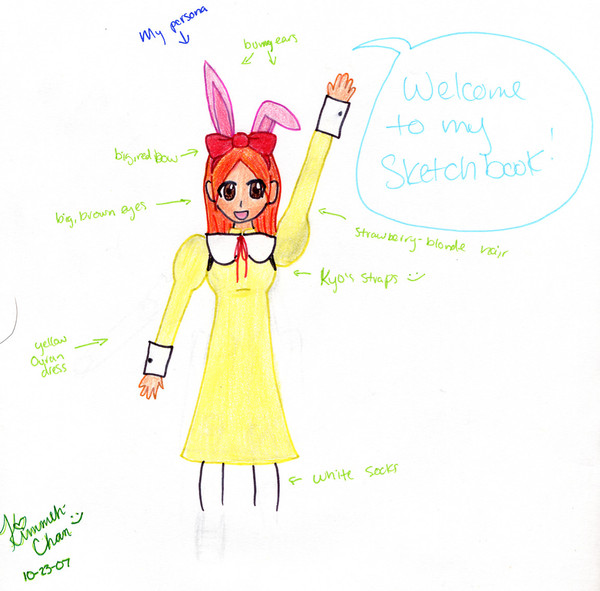 My persona
bunny ears
Welcome
to my
Sketchbook!
big, red bow
big, brown eyes
strawberry-blonde hair
Kyo's straps :)
yellow
Ouran
dress
white socks
Kimmeh-
Chan :)
10-23-07